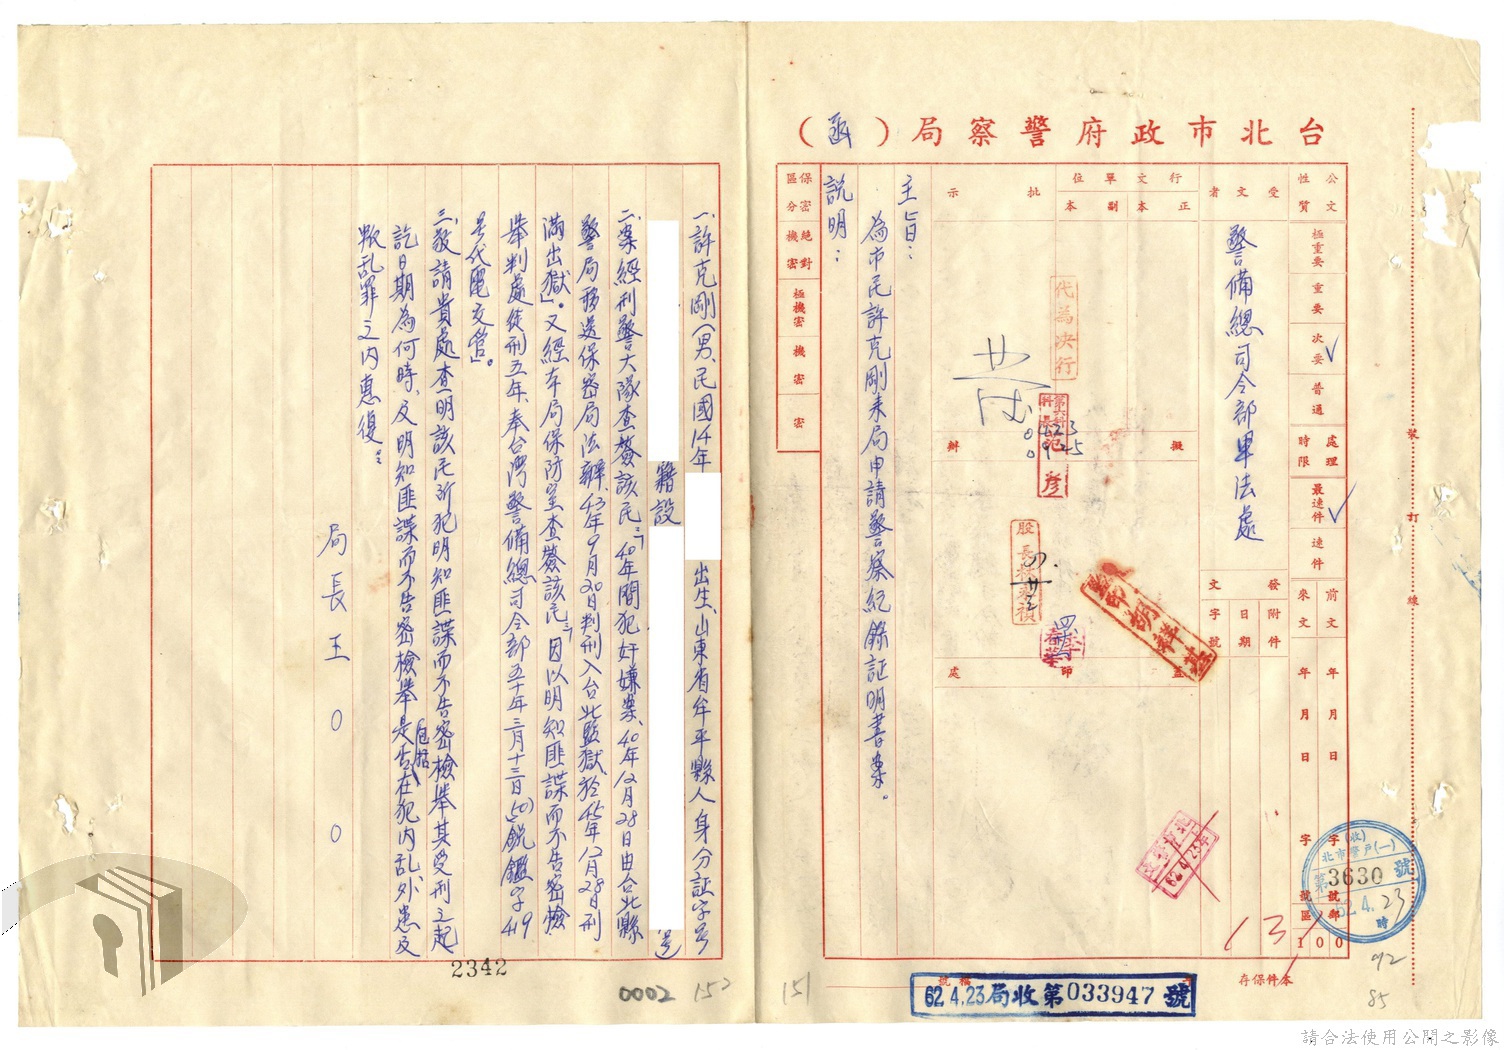 台北市政府警察局（函）
公文性質
極重要
重要
次要
普通
處理時限
最速件
速件
前文
來文
年月日
年月日
字號
字號
郵區
100
受文者
警備總司令部軍法處
發文
附件
日期
字號
行文單位
正本
副本
批示
代為決行
擬辦
0423
0925
股長
處
保密區分
絕對機密
極機密
機密
密
主旨：
為市民許克剛來局申請警察紀錄証明書案。
說明：
一、許克剛（男、民國14年
出生、山東省牟平縣人身分証字号
籍設
号）
二、案經刑警大隊查簽該民：「40年間犯奸嫌案、40年12月28日由台北縣
警局移送保密局法辦、43年9月20日判刑入台北監獄、於45年12月28日刑
滿出獄」。又經本局保防室查簽該民：「因以明知匪諜而不告密檢
舉判處徒刑五年、奉台灣警備總司令部五十年三月十三日(50)銳鑑字419
号代電交管」。
三、敬請貴處查明該民所犯明知匪諜而不告密檢舉其受刑之起
訖日期為何時、及明知匪諜而不告密檢舉是否包括在犯內乱外患及
叛乱罪之內惠復。
局長王00
2342
0002
152
151
62.4.23局收第033947號
本件保存
號稿
62.4.23
(收)
北市警戶(一)
第3630號
62.4.23
時
131
92
85
裝
訂
線
請合法使用公開之影像